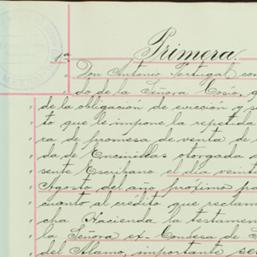 Primera.
1ª
" Don Antonio Portugal con
" do de la Señora Cosio,
" de la obligacion de eviccion y s
" to que le impone la repetida
" ra de promesa de venta de
" da de Encinillas otorgada
" sente Escribano el dia veinte
" Agosto del año próximo pa
" cuanto al crédito que reclam
" cha Hacienda la testament
" la Señora ex-Condesa de S
" del Alamo, importante se